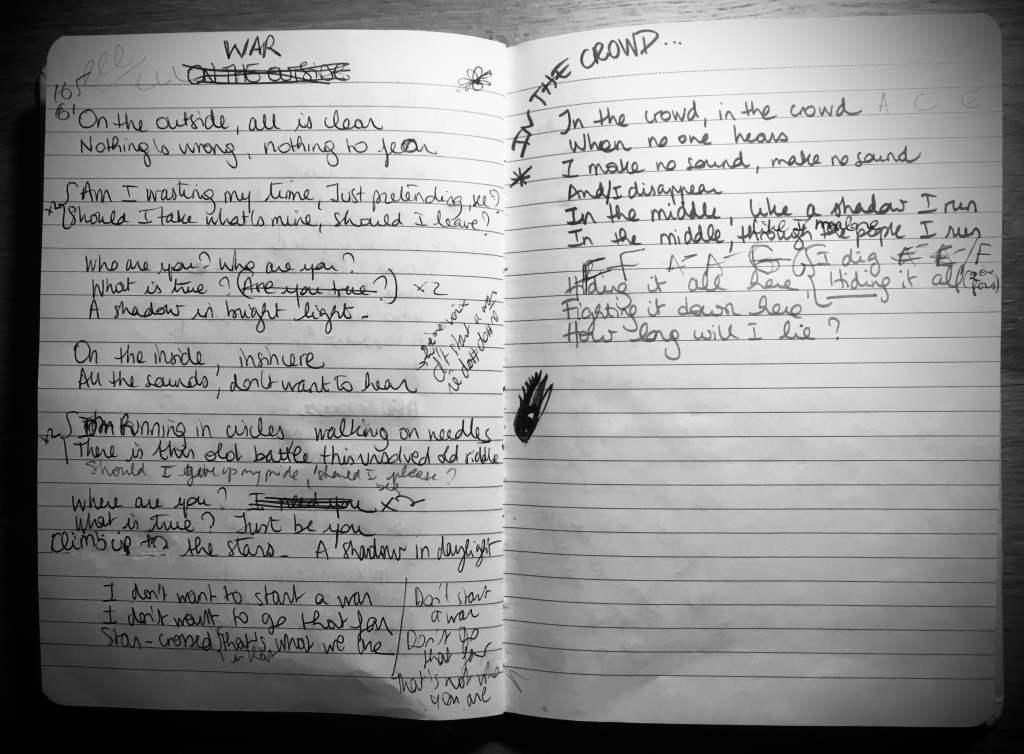 WAR
ON THE OUTSIDE
165
61
On the outside, all is clear
Nothing is wrong, nothing to fear
x2 Am I wasting my time, Just pretending,
Should I take what's mine, should I leave?
Who are you? Who are you?
What is true? (Are you true?) x2
A shadow in bright light -
On the inside, insincere
All the sounds, don't want to hear
x2 I'm Running in circles walking on needles
There is this old battle this unsolved old riddle
Should I give up my pride, should I please?
Where are you? I need you x2
What is true? Just be you
Climb up to the stars - A shadow in daylight
I don't want to start a war
I don't want to go that far
Star-crossed that's what we are
in that
Don't start
a war
Don't go
that far
That's not who
you are
* IN THE CROWD...
In the crowd, in the crowd A C E
When no one hears
I make no sound, make no sound
And/I disappear
In the middle, like a shadow I run
In the middle, through the people I run
F F A- A- G G I dig E- E- /F
Hiding it all here, Hiding it all
Fighting it down here
How long will I lie?